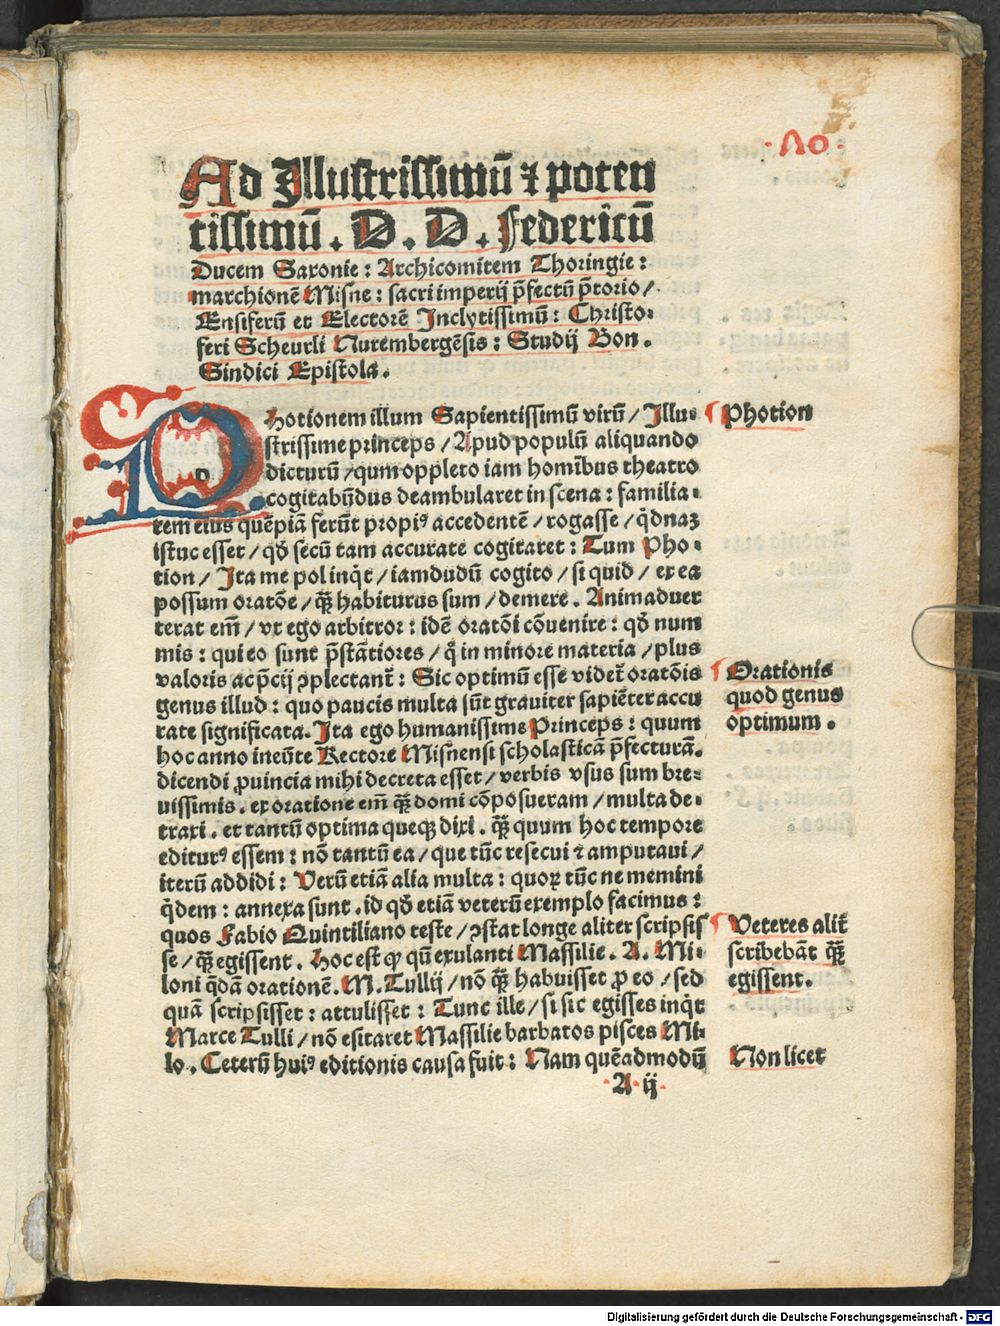 ·Λ0·
Ad Illustrissimū ⁊ poten
tissimū . D . D . Federicū
Ducem Saxonie : Archicomitem Thoringie :
marchionē Misne : sacri imperij p̄fectū p̄torio /
Ensiferū et Electorē Inclytissimū : Christo-
feri Scheurli Nurembergēsis : Studij Bon .
Sindici Epistola .
Photionem illum Sapientissimū virū / Illu-
strissime princeps / Apud populū aliquando
dicturū / qum oppleto iam homībus theatro
cogitabūdus deambularet in scena : familia-
rem eius quēpiā ferūt propiꝰ accedentē / rogasse / q̄dnaꝫ
istuc esset / qđ secū tam accurate cogitaret : Tum Pho-
tion / Ita me pol inq̄t / iamdudū cogito / si quid / ex ea
possum oratōe / quā habiturus sum / demere . Animaduer
terat em̄ / vt ego arbitror : idē oratōi cōuenire : qđ num
mis : qui eo sunt p̄stātiores / q̄ in minore materia / plus
valoris ac p̄cij ꝯplectanť : Sic optimū esse videť oratōis
genus illud : quo paucis multa sūt grauiter sapiēter accu
rate significata. Ita ego humanissime Princeps : quum
hoc anno ineūte Rectore Misnensi scholasticā p̄fecturā.
dicendi ꝓuincia mihi decreta esset / verbis vsus sum bre-
uissimis . ex oratione em̄ quā domi cōposueram / multa de-
traxi . et tantū optima queqꝫ dixi . quā quum hoc tempore
editurꝰ essem : nō tantū ea / que tūc resecui ⁊ amputaui /
iterū addidi : Verū etiā alia multa : quoꝝ tūc ne memini
q̄dem : annexa sunt . id qđ etiā veterū exemplo facimus :
quos Fabio Quintiliano teste / ꝯstat longe aliter scripsis
se / quā egissent . Hoc est ꝙ qū exulanti Massilie . A . Mi-
loni q̄dā orationē . M . Tullij / nō quā habuisset ꝓ eo / sed
quā scripsisset : attulisset : Tunc ille / si sic egisses inq̄t
Marce Tulli / nō esitaret Massilie barbatos pisces Mi-
lo . Ceterū huiꝰ editionis causa fuit : Nam quēadmodū
A ij
Photion
Orationis
quod genus
optimum .
Veteres aliť
scribebāt quā
egissent .
Non licet
Digitalisierung gefördert durch die Deutsche Forschungsgemeinschaft - DFG